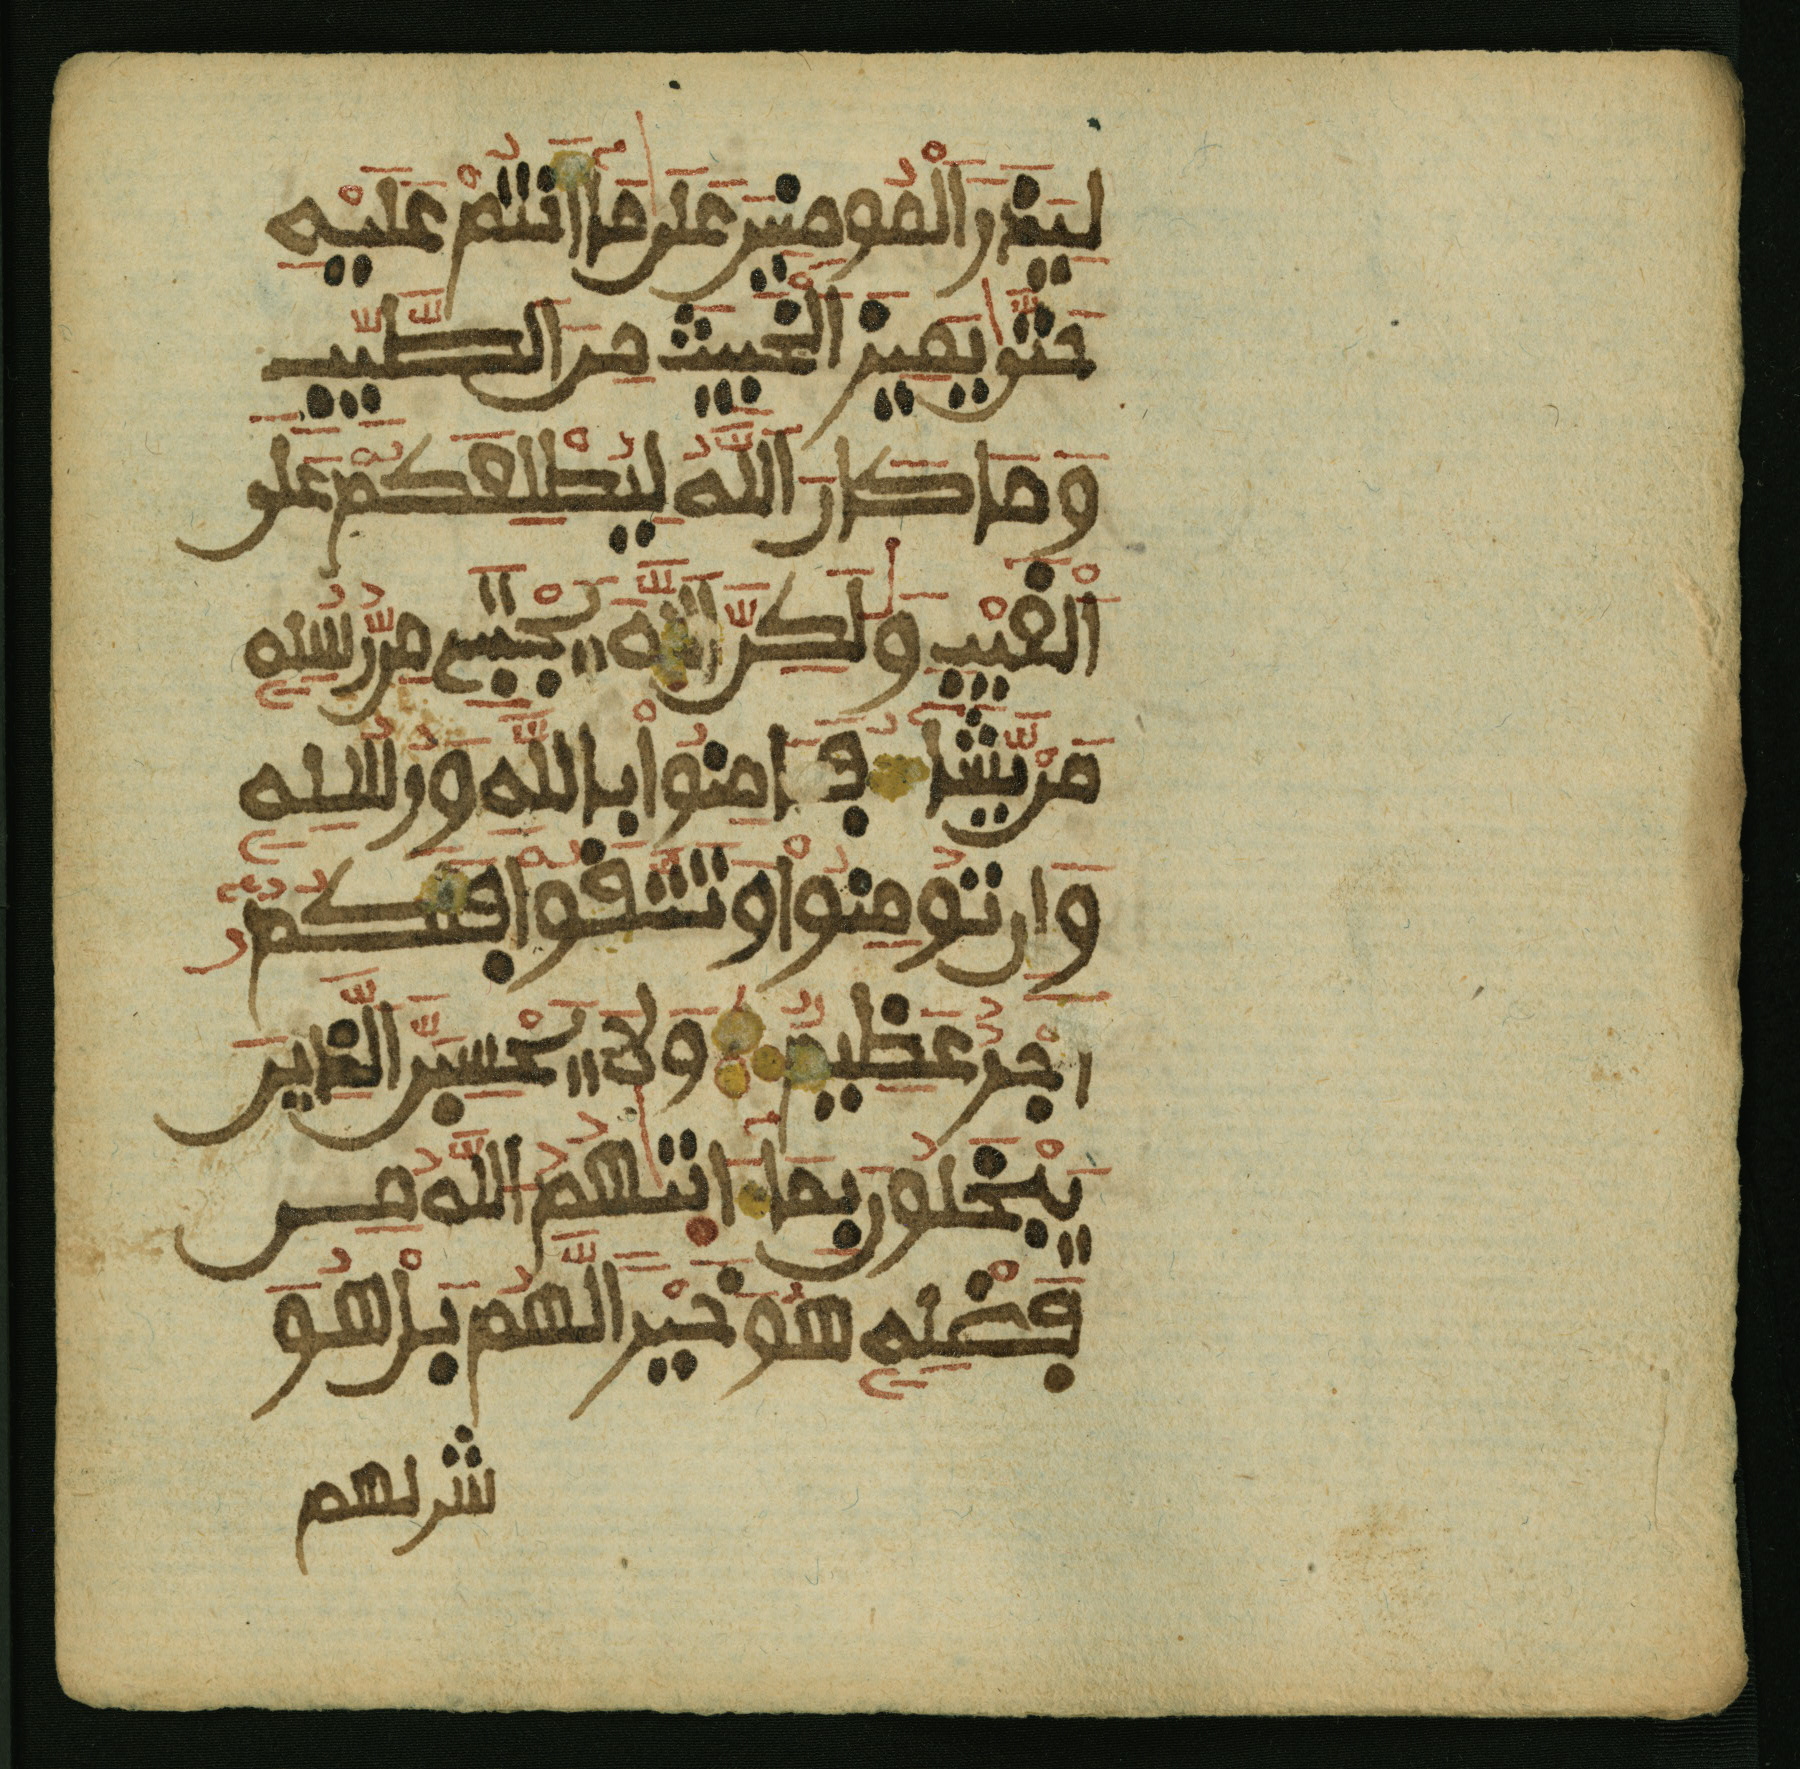 لِيَذَرَ اَلْمُومِنِينَ عَلَىٰ مَا أَنتُمْ عَلَيْهِ
حَتَّىٰ يَمِيزَ اَلْخَبِيثَ مِنَ اَلطَّيِّبِ
وَمَا كَانَ اَللَّهُ لِيُطْلِعَكُمْ عَلَى
اَلْغَيْبِ وَلَٰكِنَّ اَللَّهَ يَجْتَبِے مِن رُّسُلِهِ
مَنْ يَّشَاءُ فَـَٔامِنُوا بِاللَّهِ وَرُسُلِهِ
وَإِن تُومِنُوا وَتَتَّقُوا فَلَكُمُ
أَجْرٌ عَظِيمٌ وَلَا يَحْسِبَنَّ اَلَّذِينَ
يَبْخَلُونَ بِمَا ءَاتَىٰهُمُ اَللَّهُ مِن
فَضْلِهِ هُوَ خَيْرًا لَّهُم بَلْ هُوَ
شر لهم